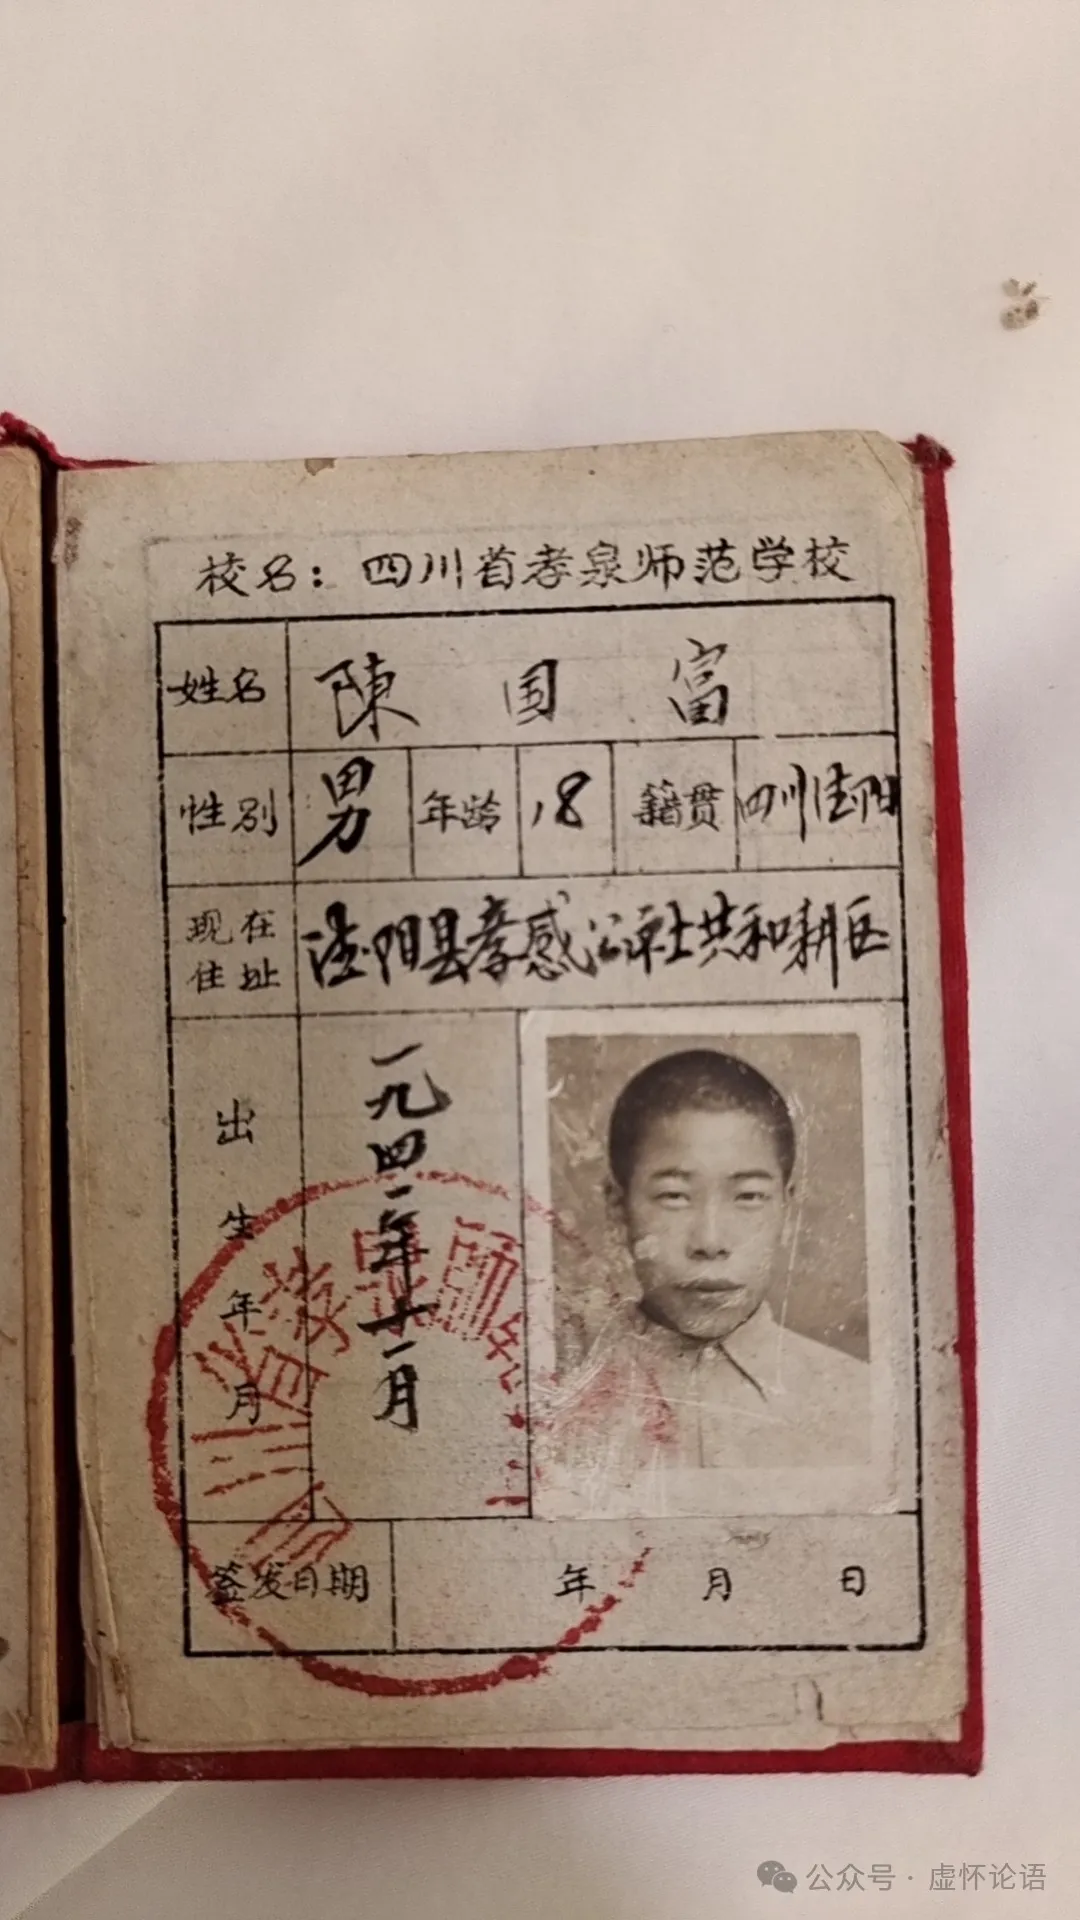 校名：四川省孝泉师范学校
姓名 陳国富
性别 男 年龄 18 籍贯 四川德阳
现在住址 德阳县孝感公社共和耕区
出生年月 一九四二年十一月
四川省孝泉师
签发日期 年 月 日
公众号 · 虚怀论语